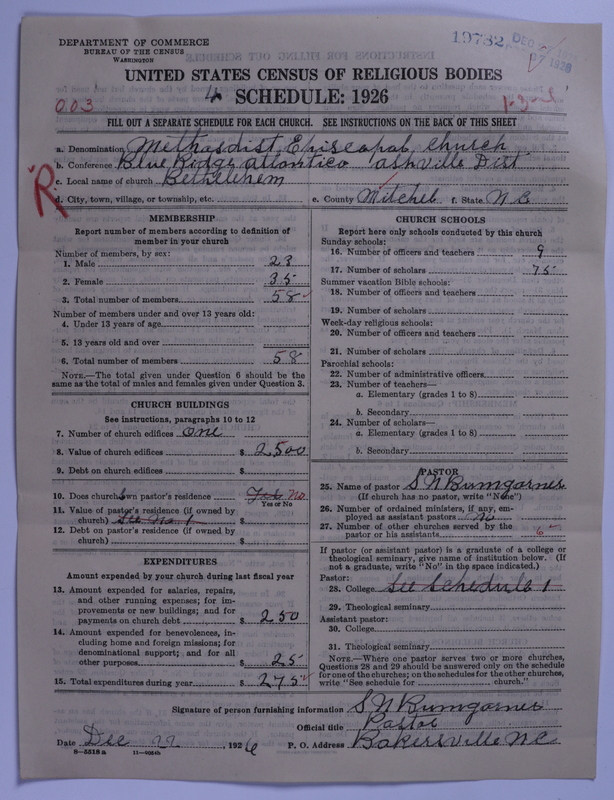 DEPARTMENT OF COMMERCE
BUREAU OF THE CENSUS
WASHINGTON
19732
UNITED STATES CENSUS OF RELIGIOUS BODIES
003
4
SCHEDULE: 1926
FILL OUT A SEPARATE SCHEDULE FOR EACH CHURCH. SEE INSTRUCTIONS ON THE BACK OF THIS SHEET
a. Denomination Methodist Episcopal Church
b. Conference Blue Ridge Atlantico Ashville Dist
c. Local name of church Bethlehem
R
d. City, town, village, or township, etc.
e. County Mitchel f. State N.C
MEMBERSHIP
Report number of members according to definition of
member in your church
Number of members, by sex:
1. Male 23
2. Female 35
3. Total number of members 58
Number of members under and over 13 years old:
4. Under 13 years of age
5. 13 years old and over
6. Total number of members 58
NOTE.—The total given under Question 6 should be
same as the total of males and females given under Question 3.
CHURCH BUILDINGS
See instructions, paragraphs 10 to 12
7. Number of church edifices one
8. Value of church edifices $ 2500
9. Debt on church edifices $
10. Does church own pastor's residence Yes No
Yes or No
11. Value of pastor's residence (if owned by
church) See No. 1 $
12. Debt on pastor's residence (if owned by
church) $
EXPENDITURES
Amount expended by your church during last fiscal year
13. Amount expended for salaries, repairs,
and other running expenses; for im-
provements or new buildings; and for
payments on church debt $ 250
14. Amount expended for benevolences, in-
cluding home and foreign missions; for
denominational support; and for all
other purposes $ 25
15. Total expenditures during year $ 275
CHURCH SCHOOLS
Report here only schools conducted by this church
Sunday schools:
16. Number of officers and teachers 9
17. Number of scholars 75
Summer vacation Bible schools:
18. Number of officers and teachers
19. Number of scholars
Week-day religious schools:
20. Number of officers and teachers
21. Number of scholars
Parochial schools:
22. Number of administrative officers
23. Number of teachers—
a. Elementary (grades 1 to 8)
b. Secondary
24. Number of scholars—
a. Elementary (grades 1 to 8)
b. Secondary
PASTOR
25. Name of pastor S N Bumgarner
(If church has no pastor, write "None")
26. Number of ordained ministers, if any, em-
ployed as assistant pastors No
27. Number of other churches served by the
pastor or his assistants 6
If pastor (or assistant pastor) is a graduate of a college or
theological seminary, give name of institution below. (If
not a graduate, write "No" in the space indicated.)
Pastor:
28. College See Schedule 1
29. Theological seminary
Assistant pastor:
30. College
31. Theological seminary
NOTE.—Where one pastor serves two or more churches,
Questions 28 and 29 should be answered only on the schedule
for one of the churches; on the schedules for the other churches,
write "See schedule for church."
Signature of person furnishing information S N Bumgarner
Official title Pastor
Date Dec 22, 1926 P. O. Address Bakersville NC
8—5518 a